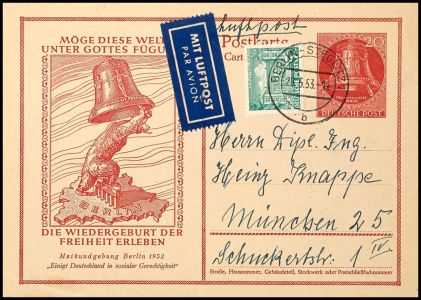 MÖGE DIESE WELT
UNTER GOTTES FÜGUNG
BERLIN
DIE WIEDERGEBURT DER
FREIHEIT ERLEBEN
Maikundgebung Berlin 1952
„Einigt Deutschland in sozialer Gerechtigkeit“
MIT LUFTPOST
PAR AVION
Luftpost
Postkarte
Cart
20
DEUTSCHE POST
BERLIN-STEGLITZ
53
b
Herrn Dipl. Ing.
Heinz Knappe
München 25
Schuckertstr. 1 IV.
Straße, Hausnummer, Gebäudeteil, Stockwerk oder Postschließfachnummer